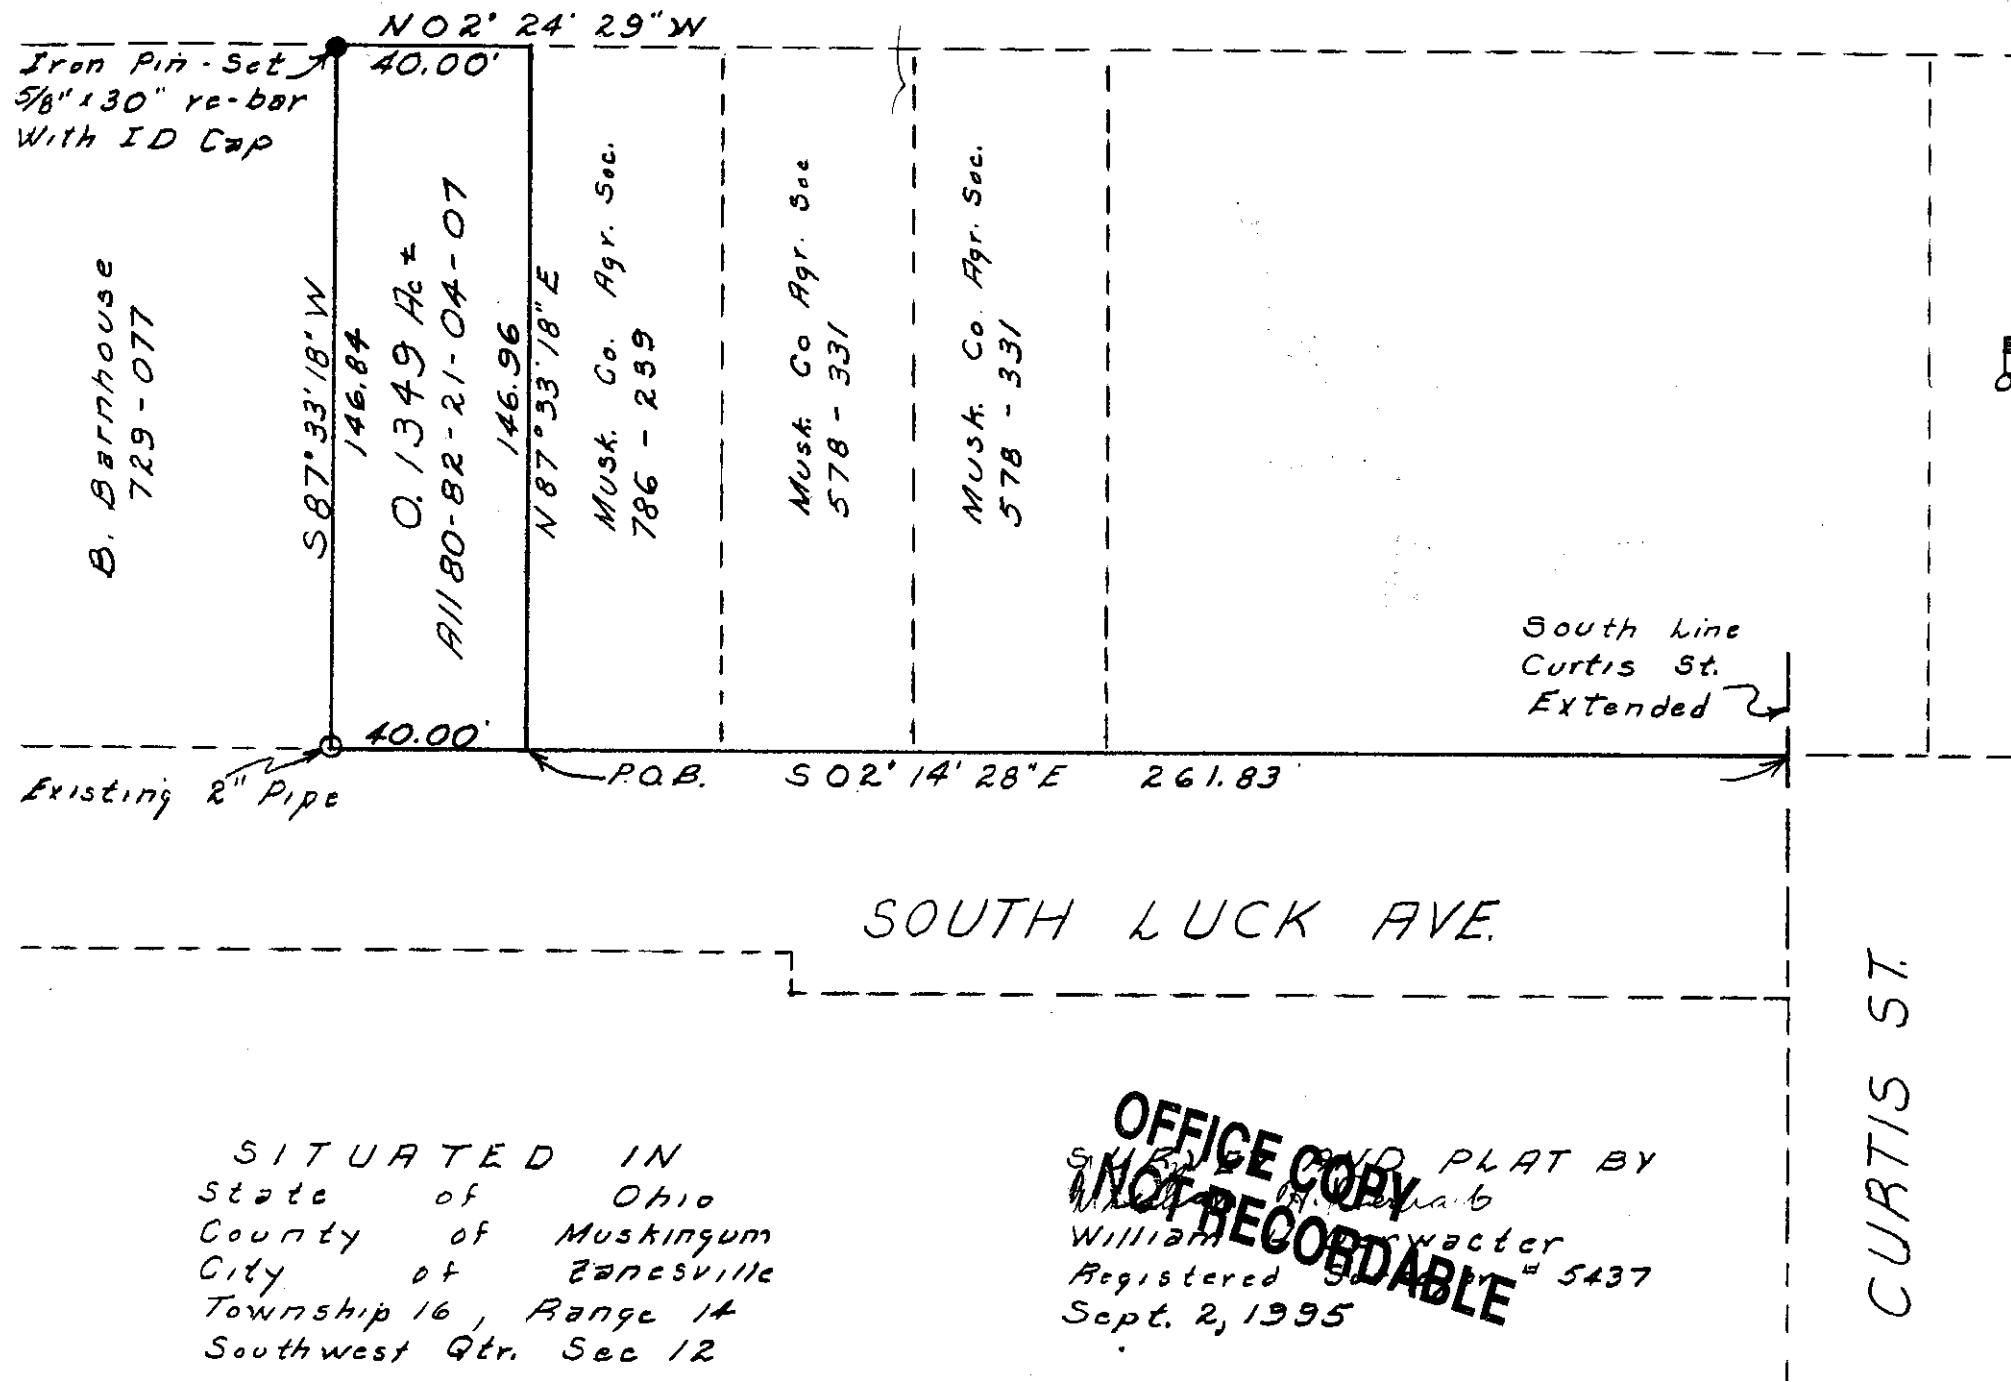 N 02° 24' 29" W
40.00'
Iron Pin - Set
5/8" x 30" re-bar
With ID Cap
B. Barnhouse
729 - 077
S 87° 33' 18" W
146.84
0.1349 Ac ±
All 80-82-21-04-07
146.96
N 87° 33' 18" E
Musk. Co. Agr. Soc.
786 - 239
Musk. Co Agr. Soc
578 - 331
Musk. Co. Agr. Soc.
578 - 331
South Line
Curtis St.
Extended
40.00'
Existing 2" Pipe
P.O.B.
S 02° 14' 28" E 261.83'
SOUTH LUCK AVE.
CURTIS ST.
SITUATED IN
State of Ohio
County of Muskingum
City of Zanesville
Township 16, Range 14
Southwest Qtr. Sec 12
OFFICE COPY
NOT RECORDABLE
SURVEY AND PLAT BY
William
Registered # 5437
Sept. 2, 1995